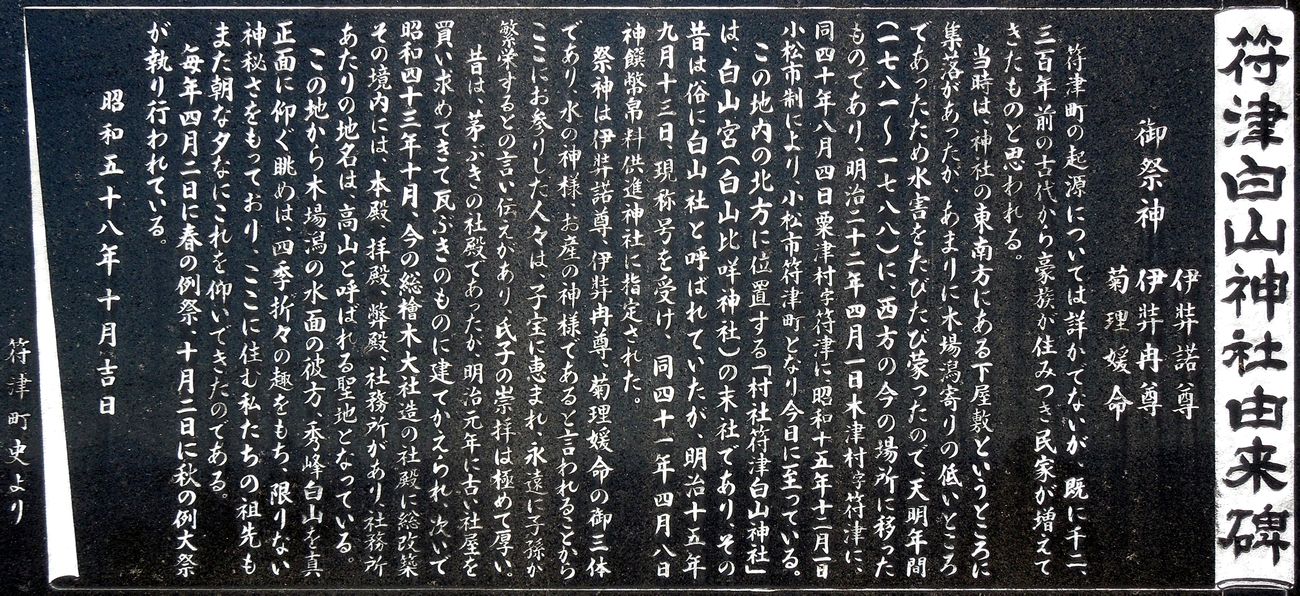 符津白山神社由来碑
御祭神
伊弉諾尊
伊弉冉尊
菊理媛命
符津町の起源については詳かでないが、既に千二、
三百年前の古代から豪族が住みつき民家が増えて
きたものと思われる。
当時は、神社の東南方にある下屋敷というところに
集落があったが、あまりに木場潟寄りの低いところ
であったため水害をたびたび蒙ったので天明年間
(一七八一〜一七八八)に、西方の今の場所に移った
ものであり、明治二十二年四月一日木津村字符津に、
同四十年八月四日粟津村字符津に昭和十五年十二月一日
小松市制により、小松市符津町となり今日に至っている。
この地内の北方に位置する「村社符津白山神社」
は、白山宮(白山比咩神社)の末社であり、その
昔は俗に白山社と呼ばれていたが、明治十五年
九月十三日、現称号を受け、同四十一年四月八日
神饌幣帛料供進神社に指定された。
祭神は伊弉諾尊、伊弉冉尊、菊理媛命の御三体
であり、水の神様・お産の神様であると言われることから
ここにお参りした人々は、子宝に恵まれ、永遠に子孫が
繁栄するとの言い伝えがあり、氏子の崇拝は極めて厚い。
昔は、茅ぶきの社殿であったが、明治元年に古い社屋を
買い求めてきて瓦ぶきのものに建てかえられ、次いで
昭和四十三年十月、今の総檜木大社造の社殿に総改築
その境内には、本殿、拝殿、弊殿、社務所があり、社務所
あたりの地名は、高山と呼ばれる聖地となっている。
この地から木場潟の水面の彼方、秀峰白山を真
正面に仰ぐ眺めは、四季折々の趣をもち、限りない
神秘さをもっており、ここに住む私たちの祖先も
また朝な夕なにこれを仰いできたのである。
毎年四月二日に春の例祭、十月二日に秋の例大祭
が執り行われている。
昭和五十八年十月吉日
符津町史より